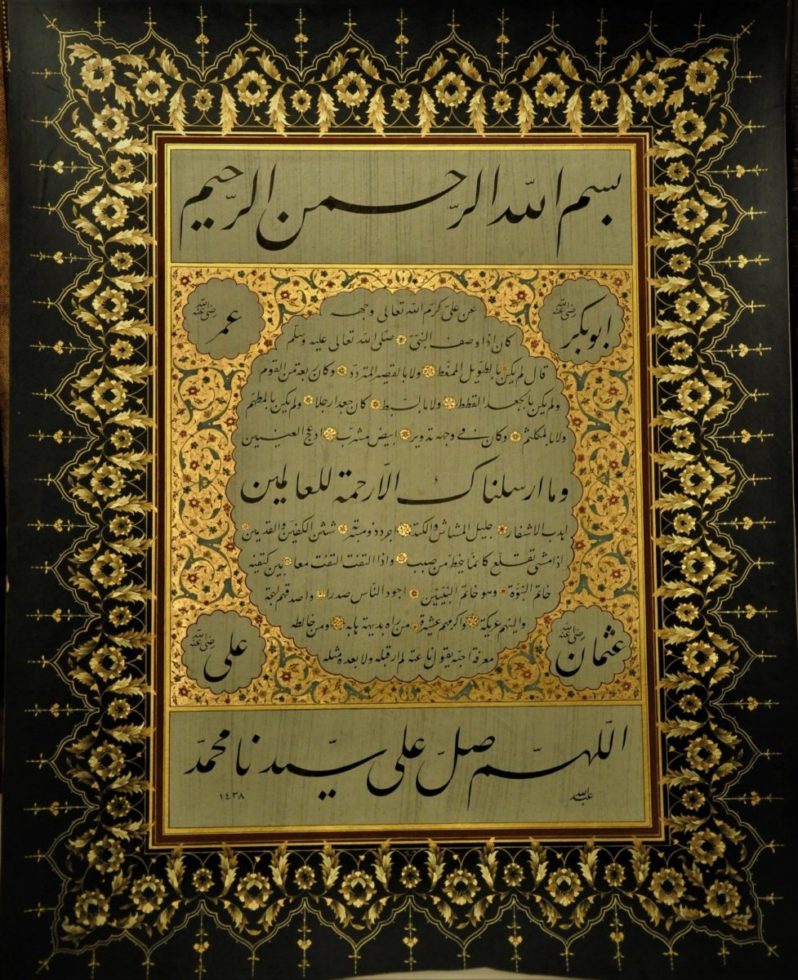 بسم الله الرّحمن الرّحيم
ابوبكر رضي الله عنه
عمر رضي الله عنه
عن علیّ كرّم الله تعالى وجهه
كان اذا وصف النبیّ صلی الله تعالى عليه وسلم
قال لم يكن بالطويل الممغط ولا بالقصير المتردد وكان ربعة من القوم
ولم يكن بالجعد القطط ولا بالسبط كان جعدا رجلا ولم يكن بالمطهم
ولا بالمكلثم وكان فے وجهه تدوير ابيض مشرب ادعج العينين
وما ارسلناك الّا رحمة للعالمين
اهدب الاشفار جليل المشاش والكتد اجرد ذو مسربة شثن الكفين والقدمين
اذا مشى تقلع كانما ينحط من صبب واذا التفت التفت معا بين كتفيه
خاتم النبوّة وهو خاتم النبيّين اجود النّاس صدرا واصدقهم لهجة
والينهم عريكة واكرمهم عشيرة من رآه بديهة هابه ومن خالطه
معرفة احبه يقول ناعته لم ار قبله ولا بعده مثله
عثمان رضي الله عنه
علی رضي الله عنه
اللّهمّ صلّ علی سيّدنا محمّد
عبدالله
١٤٣٨